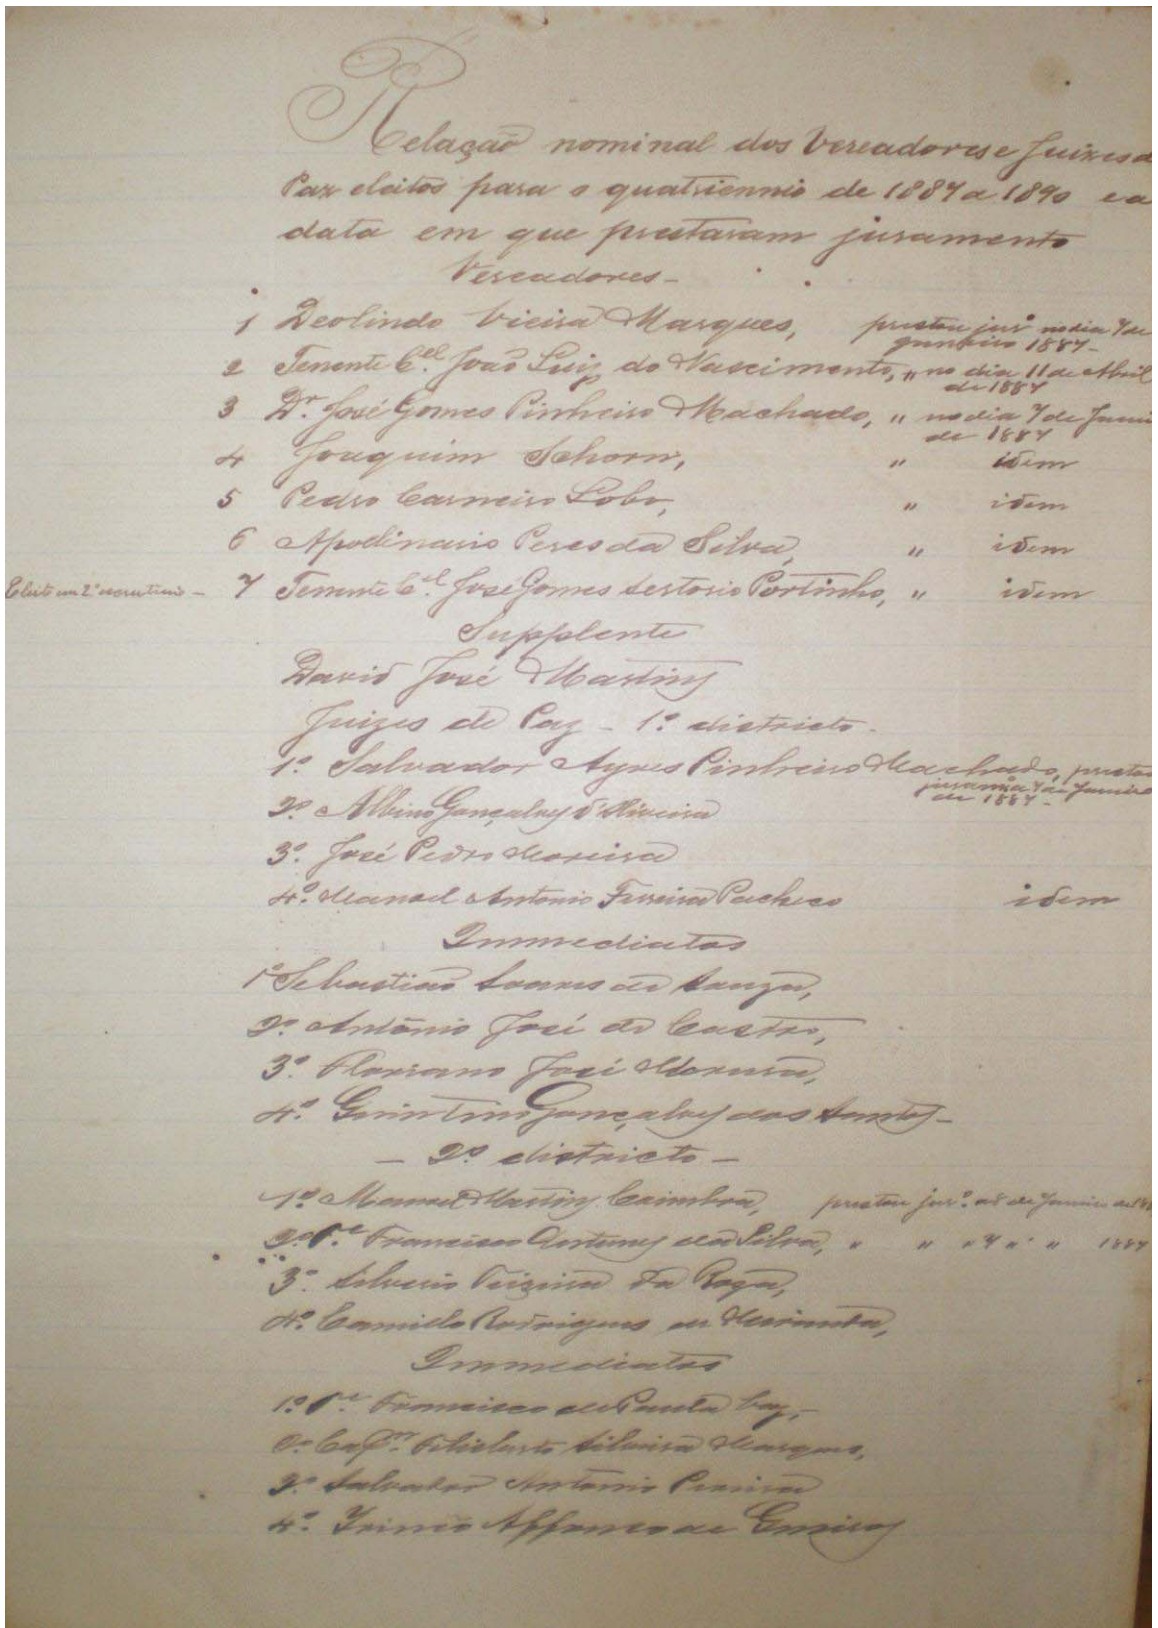 Relação nominal dos Vereadores e Juizes d
Paz eleitos para o quatriennio de 1887 a 1890 e a
data em que prestaram juramento
Vereadores -
1 Deolindo Vieira Marques, prestou jur.º no dia 7 de
Janeiro 1887 -
2 Tenente C.el João Luiz do Nascimento, " no dia 11 de Abril
de 1887
3 Dr José Gomes Pinheiro Machado, " no dia 7 de
de 1887
4 Joaquim Schorn, " idem
5 Pedro Carneiro Lobo, " idem
6 Apolinario Peres da Silva, " idem
Eleito em 2º escrutinio - 7 Tenente C.el José Gomes Sertorio Portinho, " idem
Supplente
David José Martins
Juizes de Paz - 1º districto -
1º Salvador Ayres Pinheiro Machado,
de 1887 -
2º Albino Gonçalves d'Oliveira
3º José Pedro Moreira
4º Manoel Antonio Ferreira Pacheco idem
Immediatos
1º Sebastião Soares de Souza,
2º Antônio José de Castro,
3º Floriano José
4º Gonçalves dos Santos -
- 2º districto -
1º Manoel Martins Coimbra, prestou jur.º de Janeiro de
2º Francisco Antunes da Silva, " " " 7 " " 1887
3º Silverio Teixeira da
4º Camillo Rodrigues de Miranda,
Immediatos
1º Francisco de Paula
Cap.m Silveira Marques,
Salvador Antonio Pereira
4º Affonso de